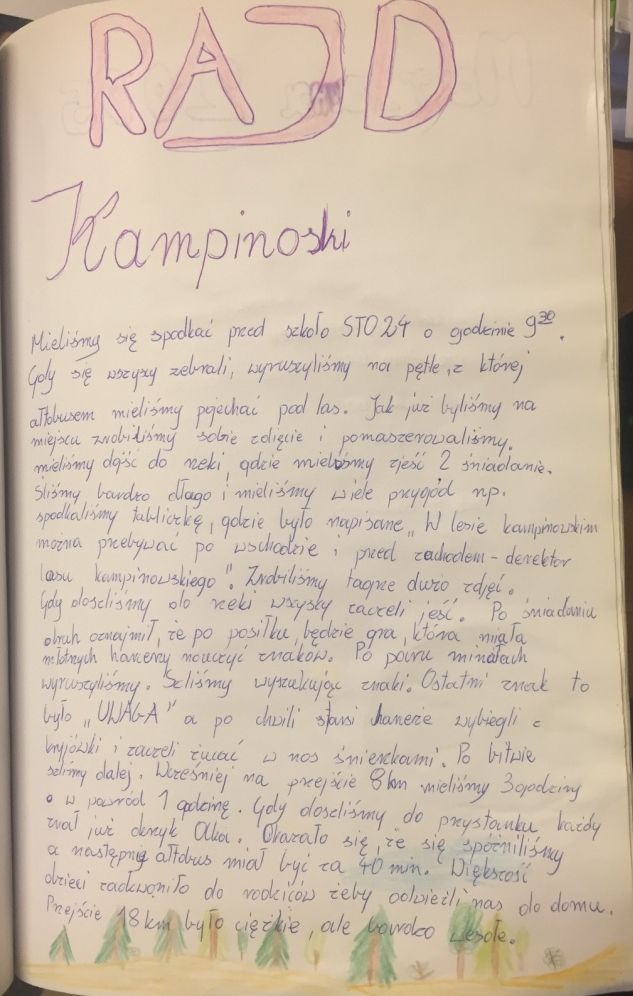 RAJD
Kampinoski
Mieliśmy się spodkać przed szkoło STO24 o godzinie 9³⁰.
Gdy się wszyscy zebrali, wyruszyliśmy na pętle, z której
ałtobusem mieliśmy pojechać pod las. Jak już byliśmy na
miejscu zrobiliśmy sobie zdięcie i pomaszerowaliśmy.
mieliśmy dojść do rzeki, gdzie mieliśmy zjeść 2 śniadanie.
Śliśmy bardzo długo i mieliśmy wiele przygód np.
spodkaliśmy tabliczkę, gdzie było napisane „W lesie kampinowskim
można przebywać po wschodzie i przed zachodem - derektor
lasu kampinowskiego". Zrobiliśmy fagne dużo zdjęć.
Gdy doszliśmy do rzeki wszyscy zaczeli jeść. Po śniadaniu
druh oznajmił, że po posiłku będzie gra, która miała
młotrzych harcerzy nauczyć znaków. Po paru minutach
wyruszyliśmy. Szliśmy wyszukując znaki. Ostatni znak to
było „UWAGA" a po chwili starsi harcerze wybiegli z
kryjówki i zaczeli rzucać w nas śnieżkami. Po bitwie
szliśmy dalej. Wcześniej na przejście 8km mieliśmy 3godziny
a w powród 1 godzinę. Gdy doszliśmy do przystanku każdy
znał już okrzyk Olka. Okazało się, że się spóźniliśmy
a następnię ałtobus miał być za 40 min. Większość
dzieci zadzwoniło do rodziców żeby odwieźli nas do domu.
Przejście 18km było ciężkie, ale bardzo wesołe.